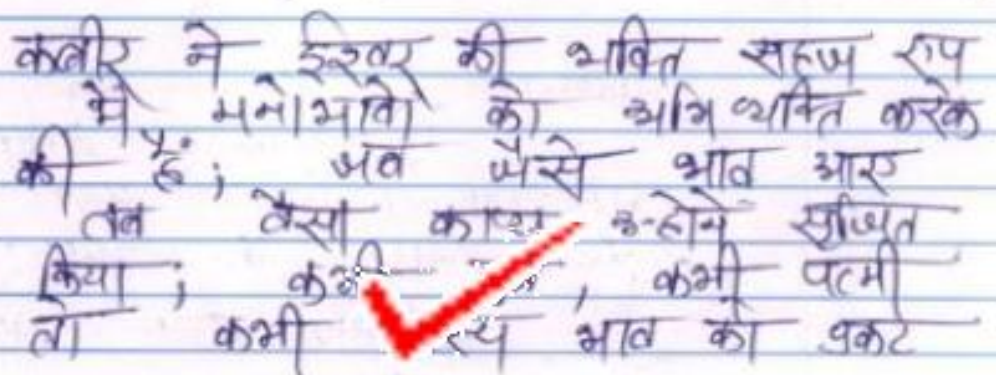 कबीर ने ईश्वर की भक्ति सहज रुप
में मनोभावों को अभिव्यक्ति करके
की हैं; जब जैसे भाव आए
तब वैसा काव्य उन्होंने सृजित
किया; कभी , कभी पत्नी
तो कभी भाव को प्रकट